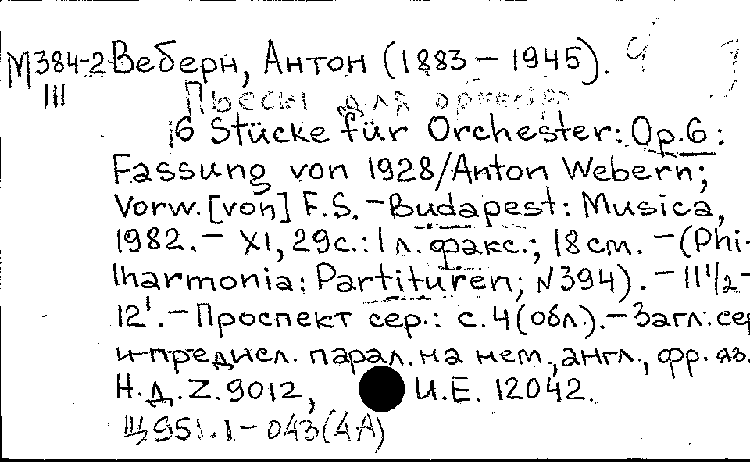 М384-2 Веберн, Антон (1883 – 1945).
III Пьесы для оркестр
6 Stücke für Orchester: Op.6:
Fassung von 1928/Anton Webern;
Vorw. [von] F.S. – Budapest: Musica,
1982. – XI, 29с.: 1 л. факс.; 18 см. – (Phi-
lharmonia: Partituren; N394). – 11 1/2 –
12'. – Проспект сер.: с. 4 (обл.). – Загл. сер
и предисл. парал. на нем., англ., фр. яз.
Н.д. Z. 9012, U.E. 12042.
Щ951.1 – 043(4А)